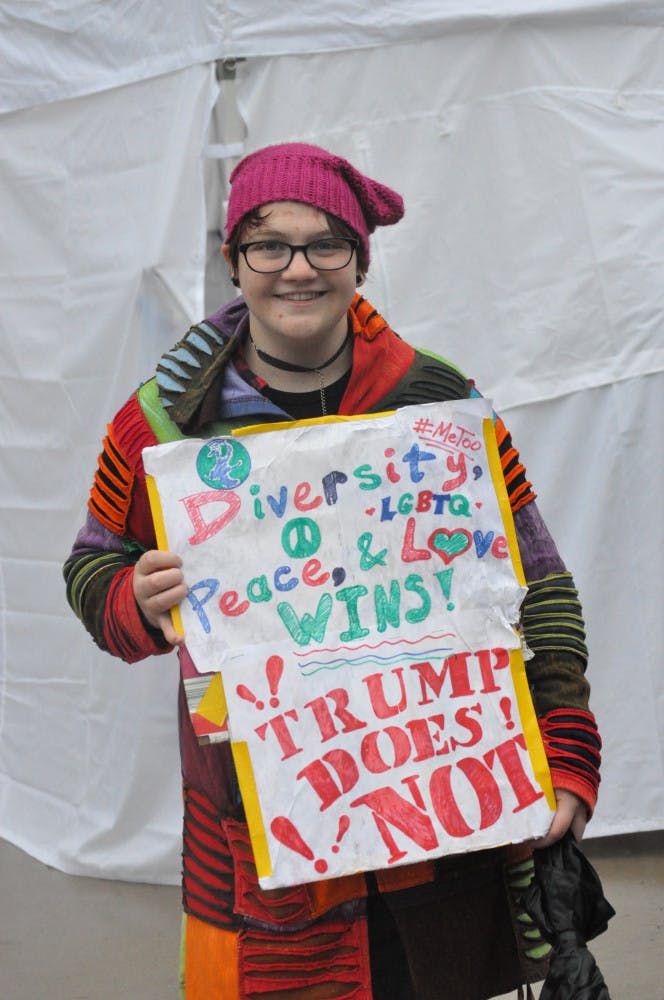 #MeToo
Diversity,
LGBTQ
Peace, & Love
WINS!
TRUMP
DOES
NOT!